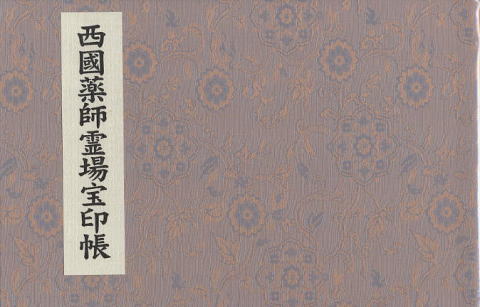 西國薬師霊場宝印帳